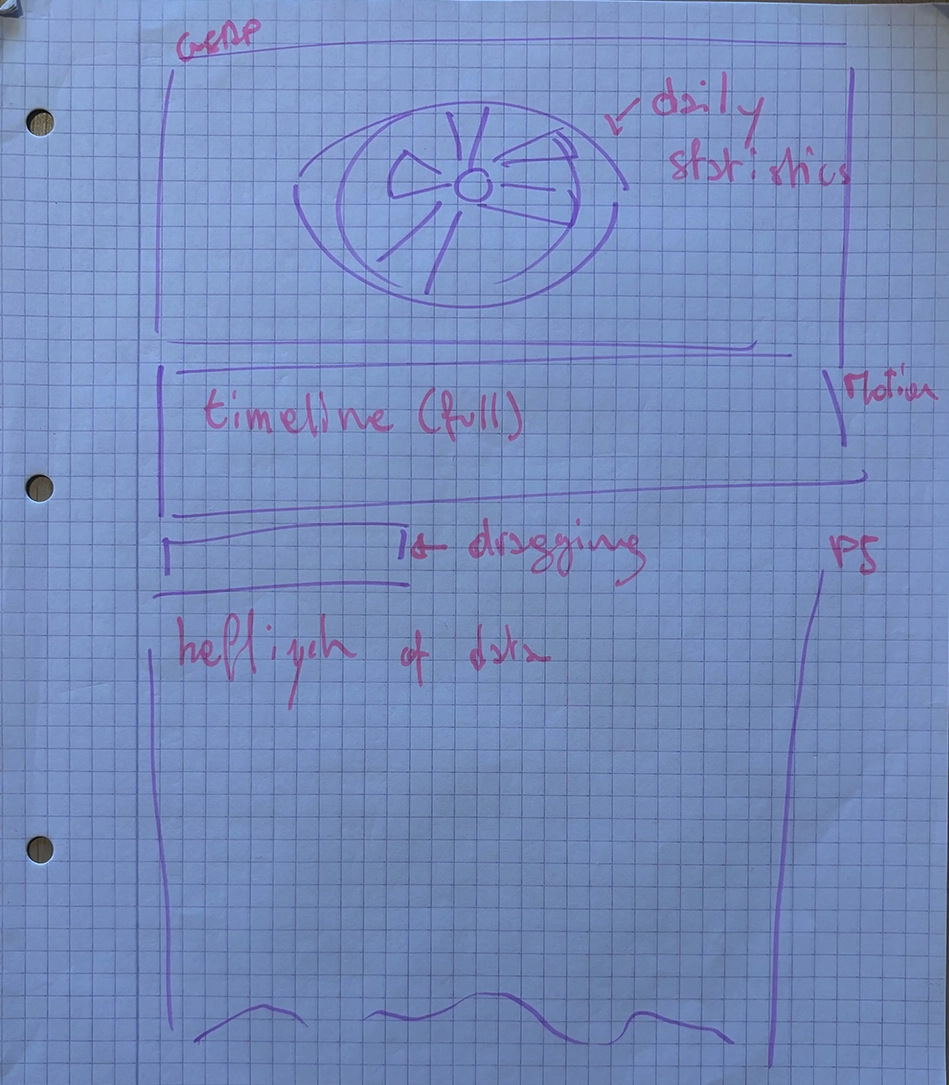 GSAP
daily
statistics
timeline (full)
Motion
dragging
P5
of data